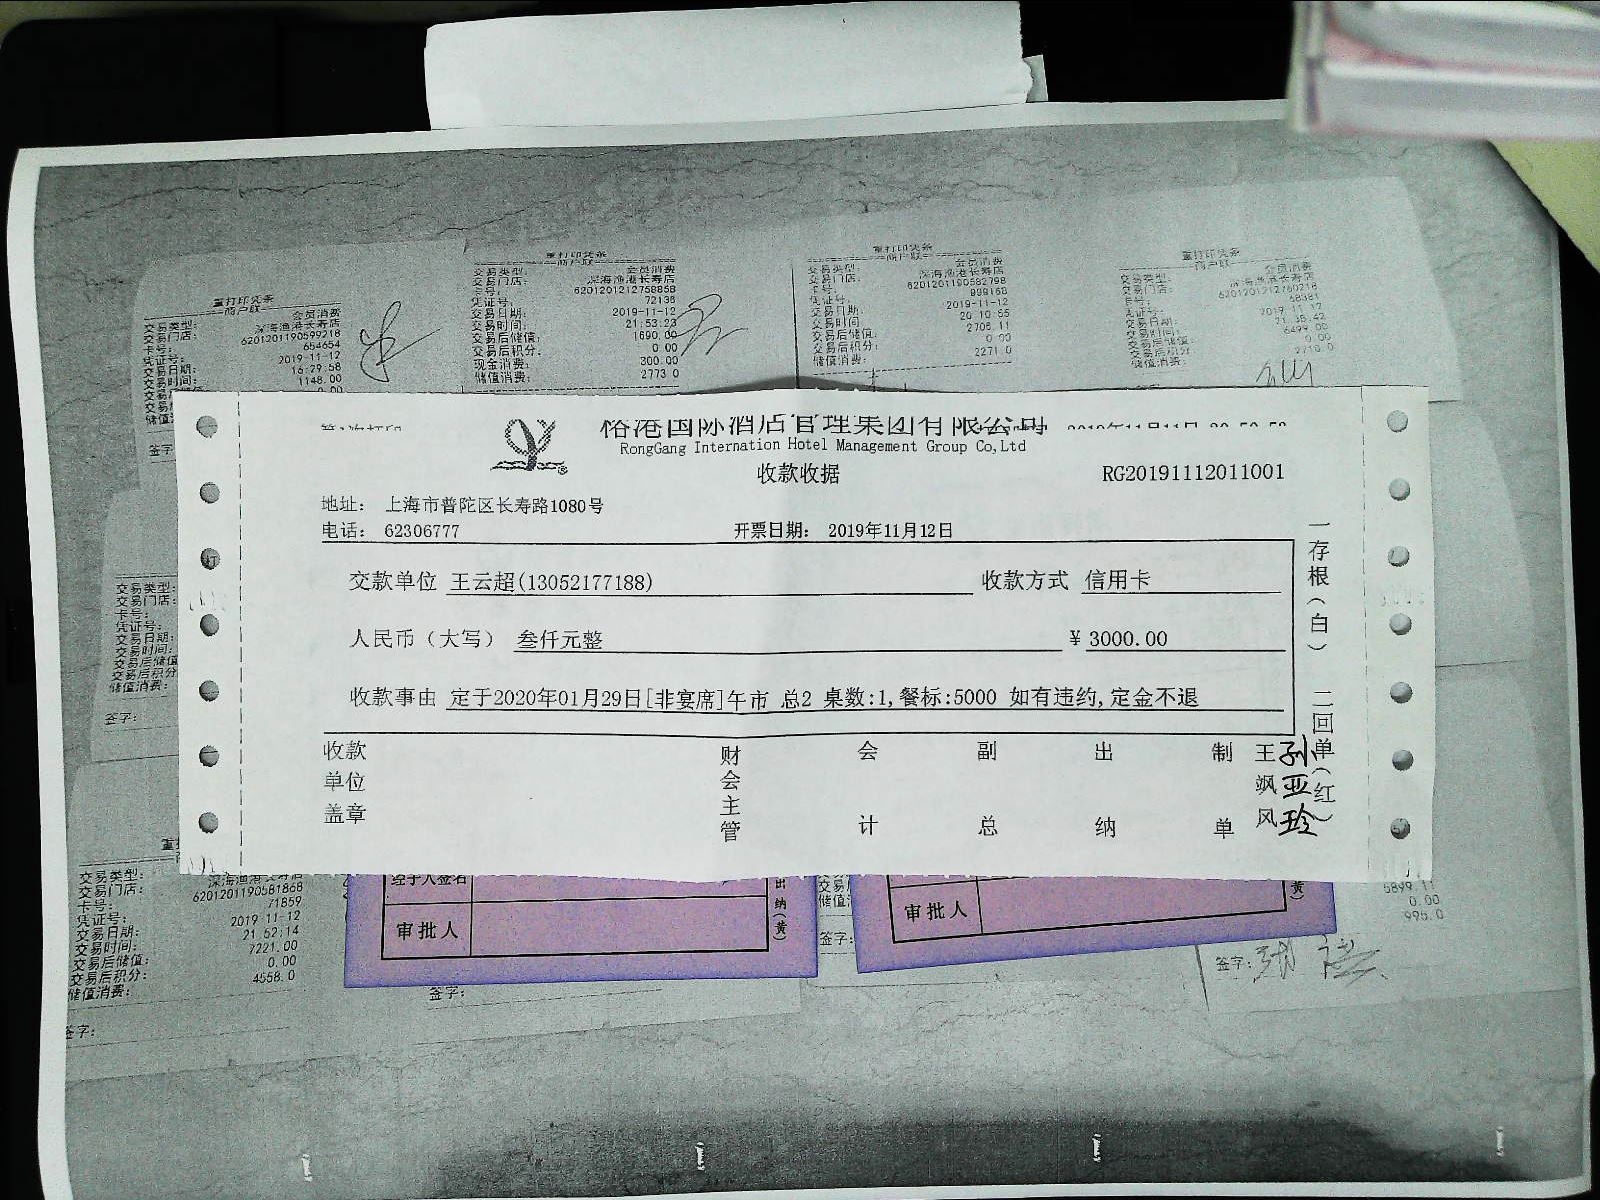 重打印凭条
商户联
交易类型: 会员消费
交易门店: 深海渔港长寿店
卡号: 6201201190599218
凭证号: 654654
交易日期: 2019-11-12
交易时间: 16:29:58
1148.00
重打印凭条
商户联
交易类型: 会员消费
交易门店: 深海渔港长寿店
卡号: 6201201212758858
凭证号: 72136
交易日期: 2019-11-12
交易时间: 21:53:23
交易后储值: 1690.00
交易后积分: 0.00
现金消费: 300.00
储值消费: 2773.0
重打印凭条
商户联
交易类型: 会员消费
交易门店: 深海渔港长寿店
卡号: 6201201190582798
凭证号: 998168
交易日期: 2019-11-12
交易时间 20:10:55
交易后储值: 2706.11
交易后积分: 0.00
储值消费: 2271.0
重打印凭条
商户联
交易类型: 会员消费
交易门店: 深海渔港长寿店
卡号: 6201201212760218
凭证号: 68381
交易日期: 2019-11-12
交易时间: 21:35:42
交易后储值: 6499.00
交易后积分: 0.00
储值消费: 2710.0
裕港国际酒店管理集团有限公司
RongGang Internation Hotel Management Group Co,Ltd
收款收据 RG20191112011001
地址: 上海市普陀区长寿路1080号
电话: 62306777 开票日期: 2019年11月12日
交款单位 王云超(13052177188) 收款方式 信用卡
人民币(大写) 叁仟元整 ¥ 3000.00
收款事由 定于2020年01月29日[非宴席]午市 总2 桌数:1,餐标:5000 如有违约,定金不退
收款单位盖章 财会主管 会计 副总 出纳 制单 王飒风 孙亚珍
一存根(白) 二回单(红)
交易类型:
交易门店:
卡号:
凭证号:
交易日期:
交易时间:
交易后储值
交易后积分
储值消费:
签字:
交易类型:
交易门店: 深海渔港长寿店
卡号: 6201201190581868
凭证号: 71859
交易日期: 2019-11-12
交易时间: 21:52:14
交易后储值: 7221.00
交易后积分: 0.00
储值消费: 4558.0
签字:
经手人签名
审批人
出纳(黄)
签字:
审批人
黄)
签字:
5899.11
0.00
995.0
签字: